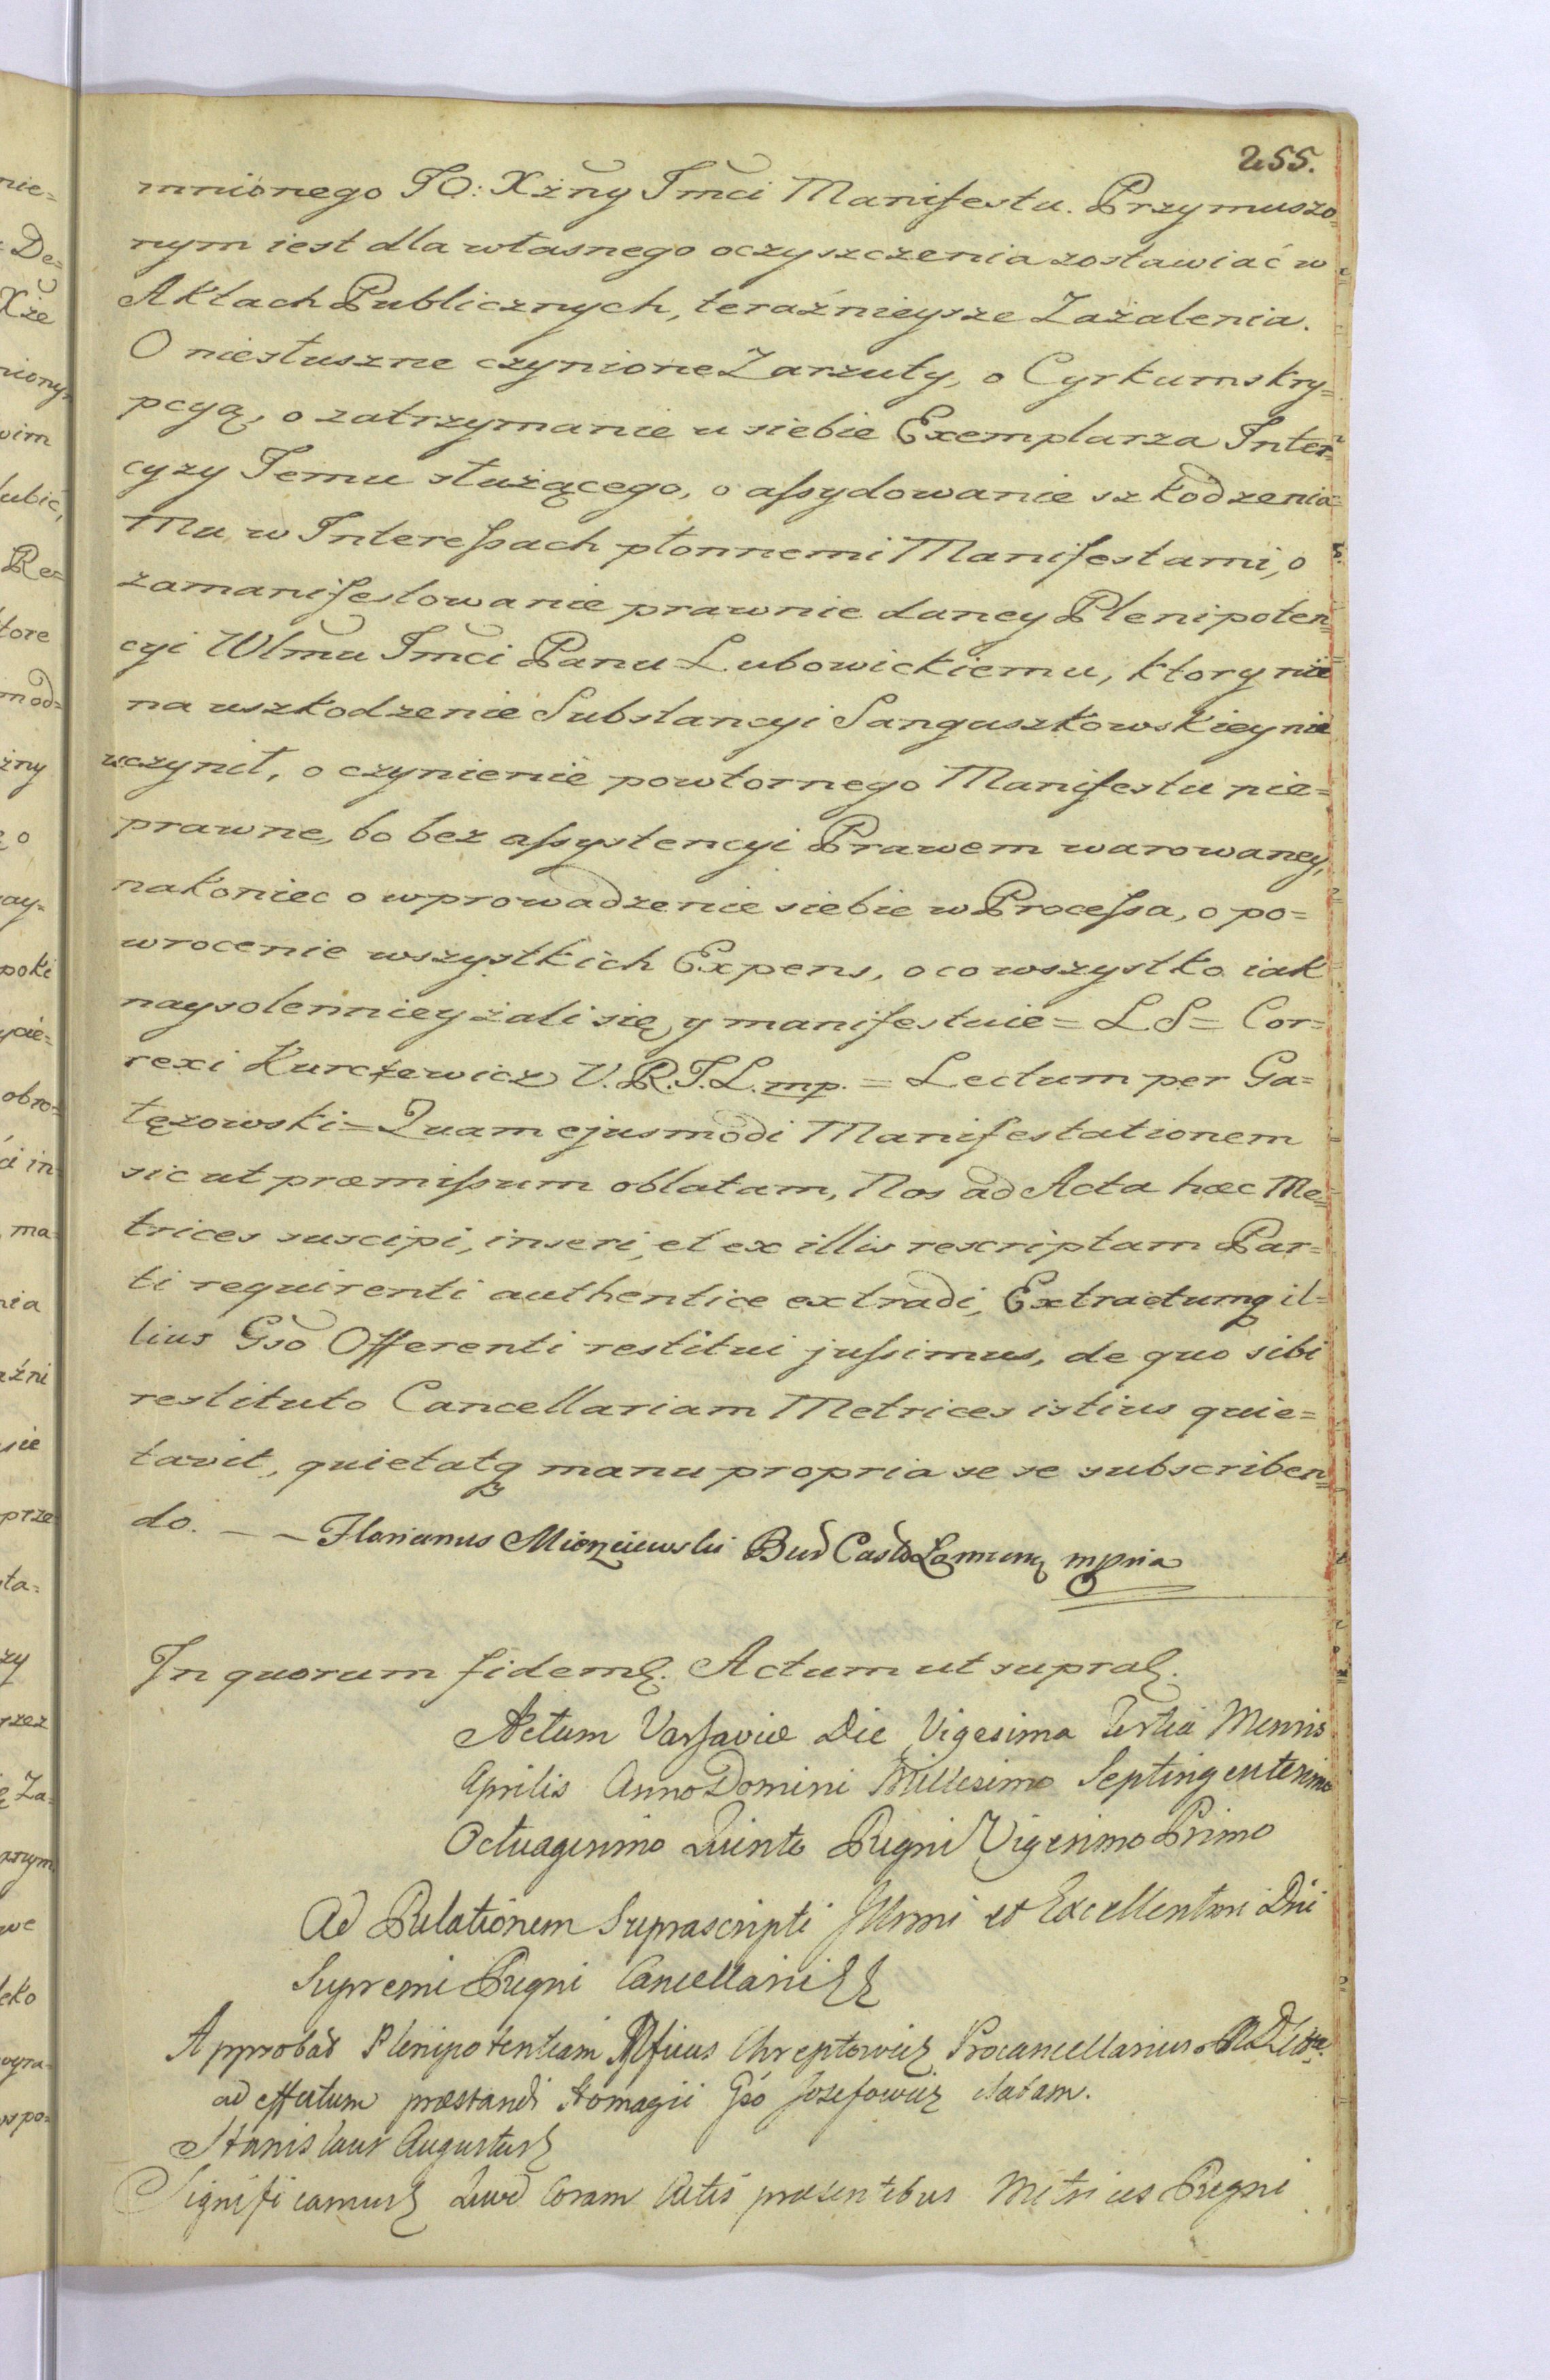 255.
mnionego JO: Xżny Jmci Manifestu. Przymuszo=
nym iest dla własnego oczyszczenia zostawiać w
Aktach Publicznych, teraźnieysze Zażalenia.
O niesłuszne czynione Zarzuty, o Cyrkumskry=
pcyą, o zatrzymanie u siebie Exemplarza Inter=
cyzy Jemu służącego, o assydowanie szkodzenia
Mu w Interessach płonnemi Manifestami, o
zamanifestowanie prawnie daney Plenipoten=
cyi Wlmu Jmci Panu Lubowickiemu, ktory nie
na uszkodzenie Substancyi Sanguszkowskiey nie
uczynił, o czynienie powtornego Manifestu nie=
prawne, bo bez assystencyi Prawem warowaney,
nakoniec o wprowadzenie siebie w Processa, o po=
wrocenie wszystkich Expens, o co wszystko iak
naysolenniey żali się y manifestuie = LS = Cor=
rexi Kurczewicz V.R.T.L. mp. = Lectum per Ga=
łęzowski = Quam ejusmodi Manifestationem
sicut præmissum oblatam, Nos ad Acta hæc Me=
trices suscipi, inseri, et ex illis rescriptam Par=
ti requirenti authentice extradi, Extractumq il=
lius Gso Offerenti restitui jussimus, de quo sibi
restituto Cancellariam Metrices istius quie=
tavit, quietatq manu propria se se subscriben=
do. — — Florianus Mierzeiewski Bur Castr mpria
In quorum fidem. Actum ut supra.
Actum Varsaviæ Die Vigesima Tertia Mensis
Aprilis Anno Domini Millesimo Septingentesimo
Octuagesimo Quinto Regni Vigesimo Primo
Ad Relationem Suprascripti Illmi et Excellentmi Dni
Supremi Regni Cancellarii
Approbat Plenipotentiam Chreptowicz Procancellarius
ad effectum præstandi Homagii Gso Jozefowicz datam.
Stanislaus Augustus
Significamus Quod Coram Actis præsentibus Metrices Regni